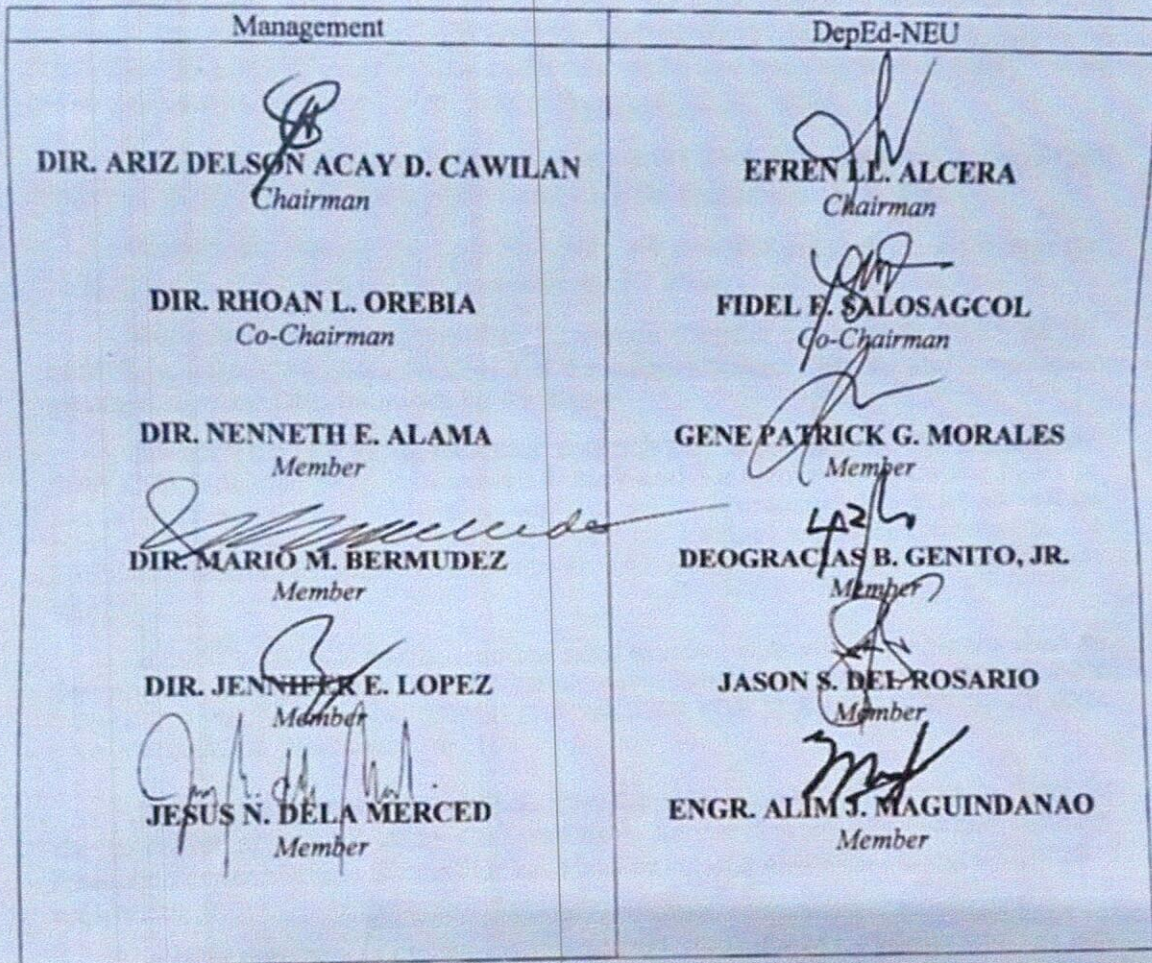 Management
DIR. ARIZ DELSON ACAY D. CAWILAN
Chairman
DIR. RHOAN L. OREBIA
Co-Chairman
DIR. NENNETH E. ALAMA
Member
DIR. MARIO M. BERMUDEZ
Member
DIR. JENNIFER E. LOPEZ
Member
JESUS N. DELA MERCED
Member
DepEd-NEU
EFREN ALCERA
Chairman
FIDEL SALOSAGCOL
Co-Chairman
GENE PATRICK G. MORALES
Member
DEOGRACIAS B. GENITO, JR.
Member
JASON S. DEL ROSARIO
Member
ENGR. ALIM J. MAGUINDANAO
Member